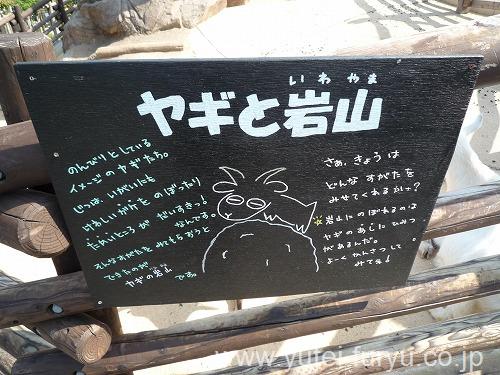 いわやま
ヤギと岩山
のんびりとしている
イメージのヤギたち。
じつは、いがいにも
けわしいがけを のぼったり
たかいところが だいすきっ!
なんです。
そんなすがたを みてもらおうと
できたのが
ヤギの岩山 です。
さぁ、きょうは
どんな すがたを
みせてくれるかナ?
岩山にのぼれるのは
ヤギのあしにひみつ
があるんだ。
よーく かんさつして
みてネ!
www.yufei-furyu.co.jp